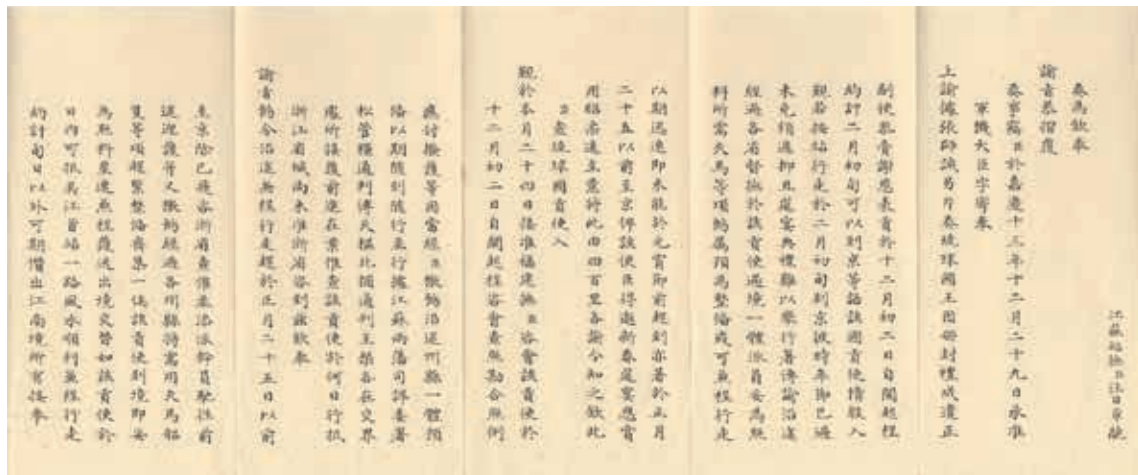 江蘇巡撫臣汪日章跪
奏為欽奉
諭旨恭摺覆
奏事竊臣於嘉慶十三年十二月二十九日承准
軍機大臣字寄奉
上諭據張師誠另片奏琉球國王因冊封禮成遣正
副使恭賫謝恩表貢於十二月初二日自閩起程
約計二月初旬可以到京等語該國貢使情殷入
覲若按站行走於二月初旬到京彼時年節已過
未免稍遲抑且筵宴典禮難以舉行著傳諭沿途
經過各省督撫於該貢使過境一體派員妥為照
料所需夫馬等項飭屬預為整備或可兼程行走
以期迅速即未能於元宵節前趕到亦著於正月
二十五以前至京俾該使臣得邀新春筵宴恩賞
用昭柔遠至意將此由四百里各諭令知之欽此
臣查琉球國貢使入
覲於本月二十四日接准福建撫臣咨會該貢使於
十二月初二日自閩起程咨會查照勘合照例
應付撥護等因當經臣檄飭沿途州縣一體預
備以期隨到隨行並行據江蘇兩藩司詳委署
松管糧通判傅天植北捕通判王榮各在交界
處所接護前進在案惟查該貢使於何日行抵
浙江省城尚未准浙省咨到茲欽奉
諭旨飭令沿途兼程行走趕於正月二十五日以前
至京除已飛咨浙省查催並添派幹員馳往前
途迎護等又檄飭經過各州縣將需用夫馬船
隻等項趕緊整備齊集一俟該貢使到境即妥
為照料晝夜兼程護送出境交替如該貢使於
日內可抵吳江首站一路風水順利兼程行走
約計旬日以外可期儹出江南境所有接奉